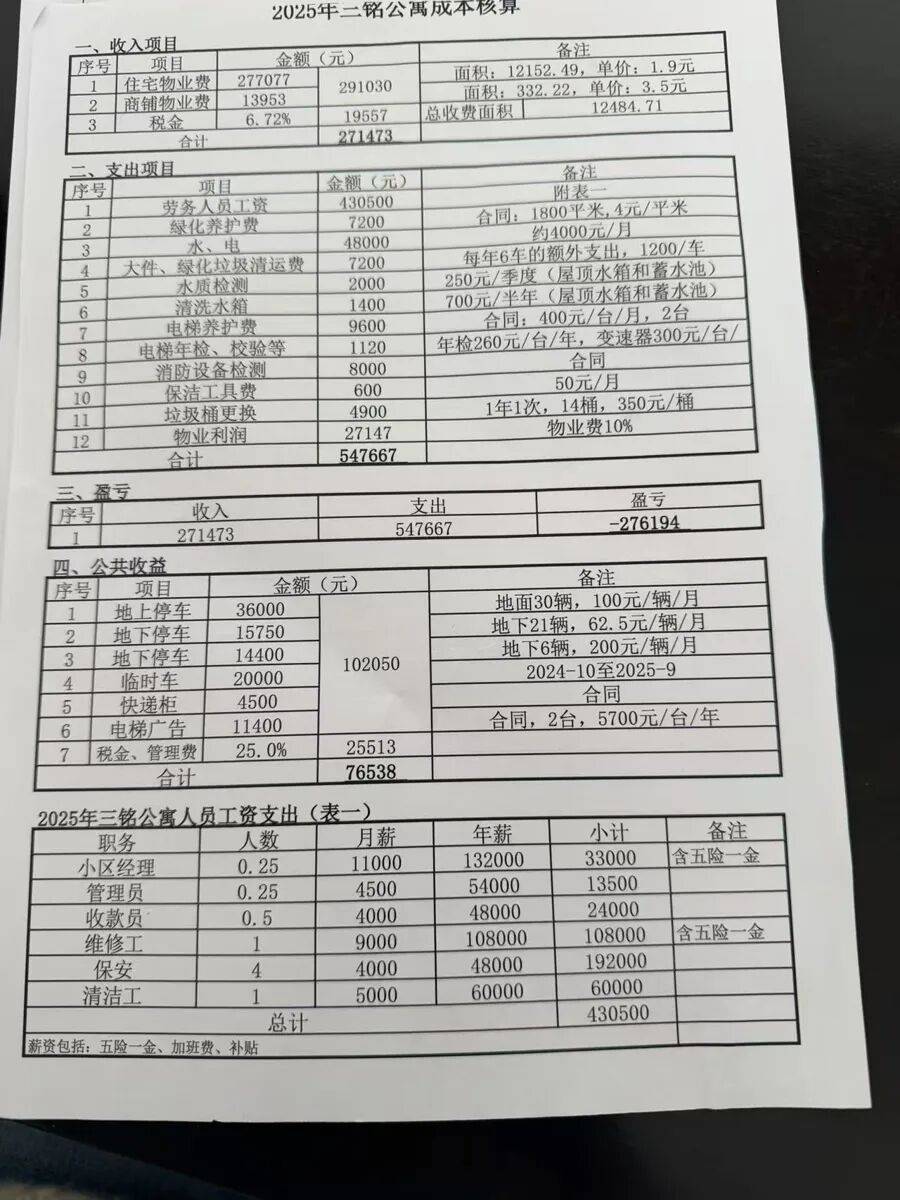 2025年三铭公寓成本核算
一、收入项目
序号 项目 金额（元） 备注
1 住宅物业费 277077 291030 面积：12152.49，单价：1.9元
2 商铺物业费 13953 面积：332.22，单价：3.5元
3 税金 6.72% 19557 总收费面积 12484.71
合计 271473
二、支出项目
序号 项目 金额（元） 备注
1 劳务人员工资 430500 附表一
2 绿化养护费 7200 合同：1800平米,4元/平米
3 水、电 48000 约4000元/月
4 大件、绿化垃圾清运费 7200 每年6车的额外支出，1200/车
5 水质检测 2000 250元/季度（屋顶水箱和蓄水池）
6 清洗水箱 1400 700元/半年（屋顶水箱和蓄水池）
7 电梯养护费 9600 合同：400元/台/月，2台
8 电梯年检、校验等 1120 年检260元/台/年，变速器300元/台/
9 消防设备检测 8000 合同
10 保洁工具费 600 50元/月
11 垃圾桶更换 4900 1年1次，14桶，350元/桶
12 物业利润 27147 物业费10%
合计 547667
三、盈亏
序号 收入 支出 盈亏
1 271473 547667 -276194
四、公共收益
序号 项目 金额（元） 备注
1 地上停车 36000 102050 地面30辆，100元/辆/月
2 地下停车 15750 地下21辆，62.5元/辆/月
3 地下停车 14400 地下6辆，200元/辆/月
4 临时车 20000 2024-10至2025-9
5 快递柜 4500 合同
6 电梯广告 11400 合同，2台，5700元/台/年
7 税金、管理费 25.0% 25513
合计 76538
2025年三铭公寓人员工资支出（表一）
职务 人数 月薪 年薪 小计 备注
小区经理 0.25 11000 132000 33000 含五险一金
管理员 0.25 4500 54000 13500
收款员 0.5 4000 48000 24000
维修工 1 9000 108000 108000 含五险一金
保安 4 4000 48000 192000
清洁工 1 5000 60000 60000
总计 430500
薪资包括：五险一金、加班费、补贴